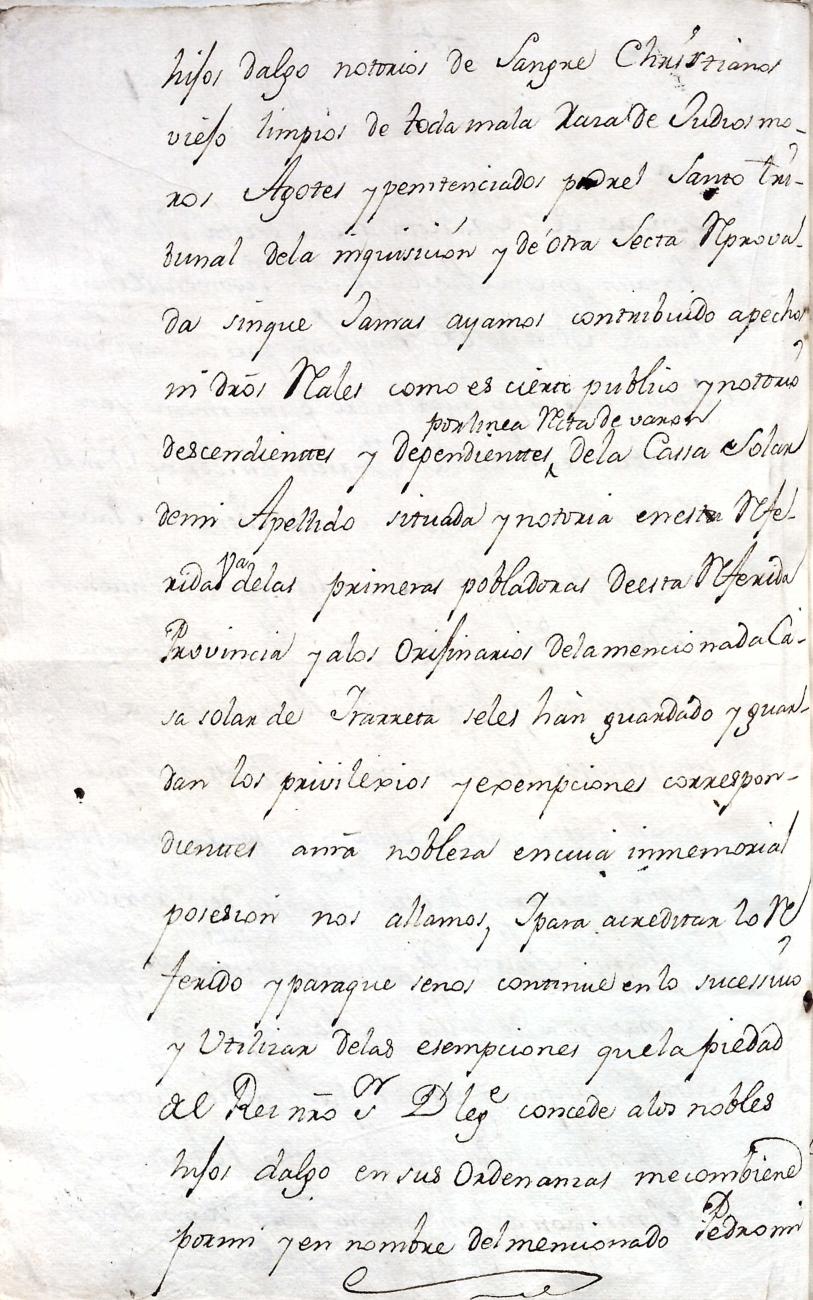 hijos dalgo notorios de Sangre Christianos
viejo limpios de toda mala Raza de Judios mo-
ros Agotes y penitenciados por el Santo tri-
bunal dela inquisición y de otra Secta Reprova-
da sinque Jamas ayamos contribuido apechos
ni drôs Reales como es cierto publico y notorio
por linea Recta de varon
descendienttes y dependienttes dela Cassa Solar
demi Apellido situada y notoria en esta Refe-
rida Va delas primeras pobladoras deesta Referida
Provincia y alos Orijinarios dela mencionada Ca-
sa solar de Irarreta seles hàn guardado y guar-
dan los privilexios y exempciones correspon-
dienttes a nrã nobleza en cuia inmemorial
posesion nos allamos, Ipara acreditar lo Re
ferido y paraque senos continue en lo sucessivo
y Utilizar delas esempciones que la piedad
del Rei nrõ Sr Dlege concede alos nobles
hijos dalgo en sus Ordenanzas me combiene
por mi y en nombre del mencionado Pedro mi